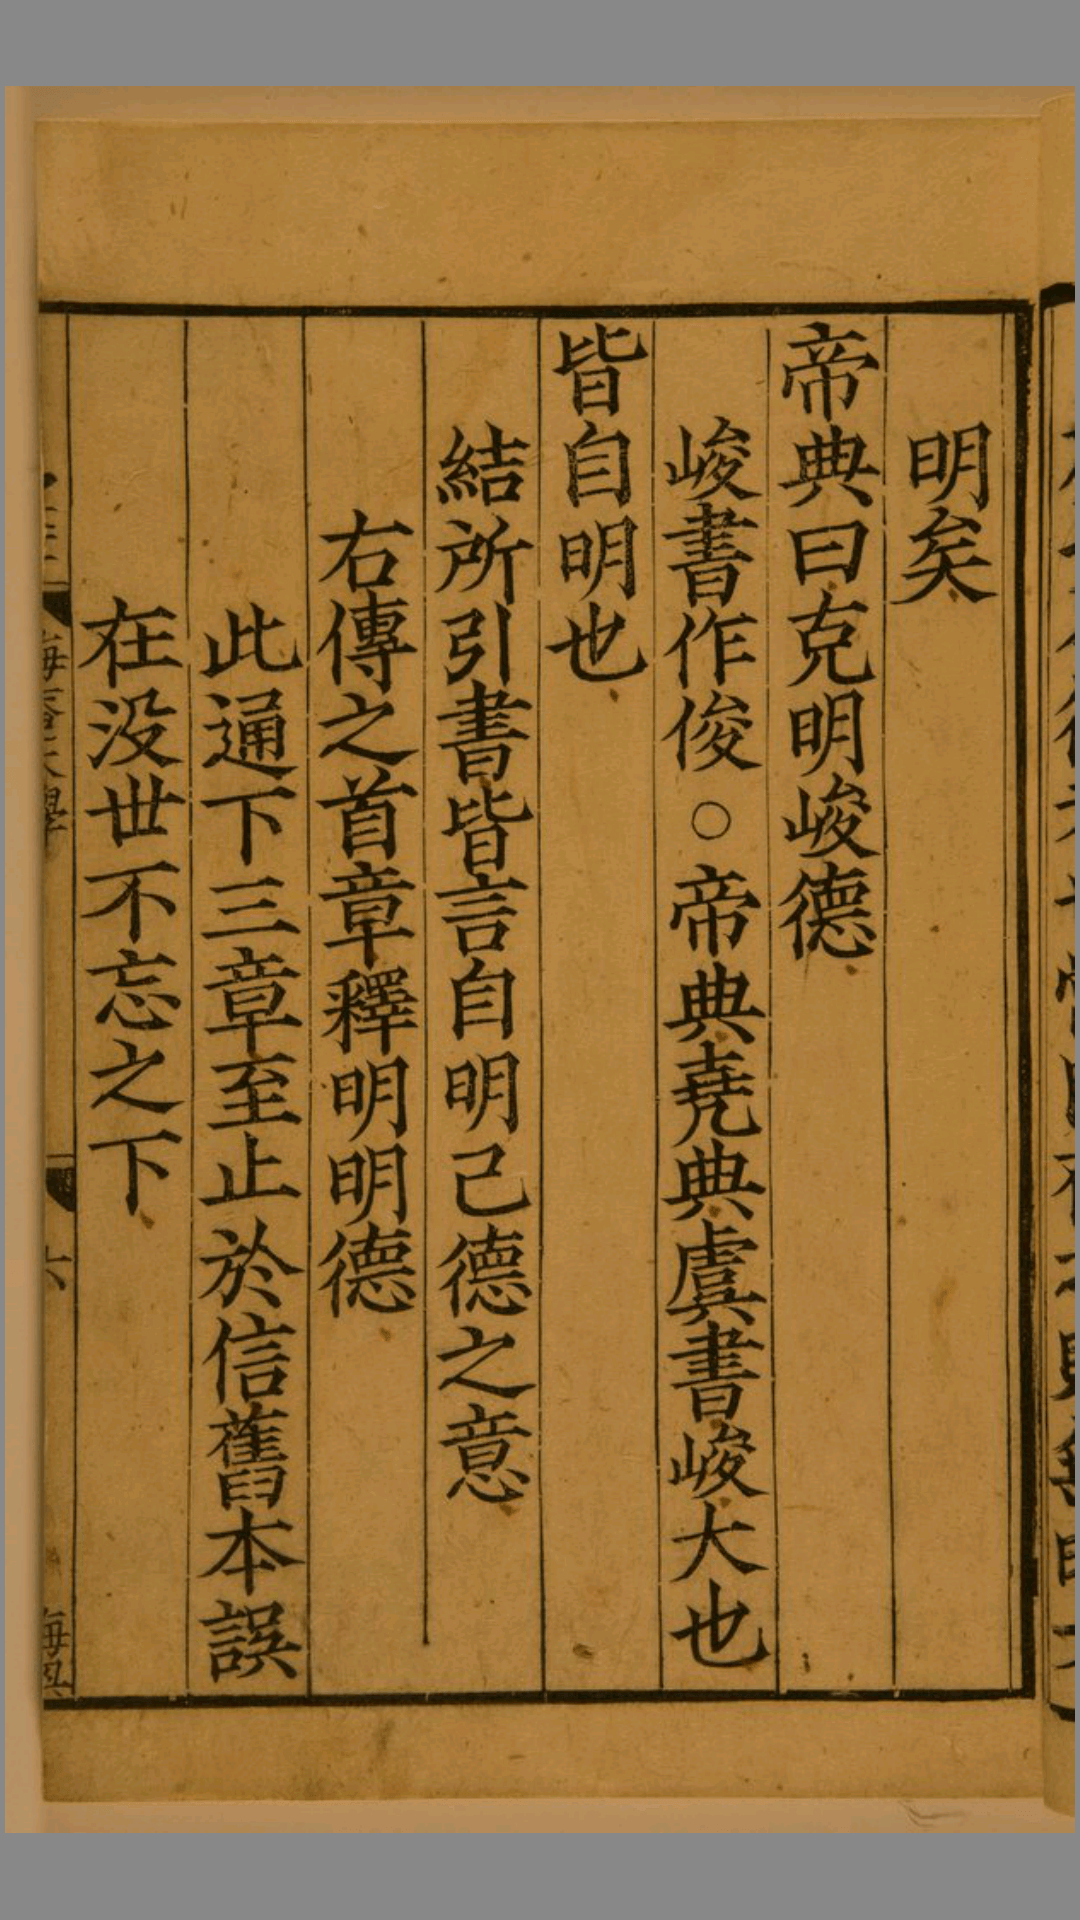 明矣
帝典曰克明峻德
峻書作俊○帝典堯典虞書峻大也
皆自明也
結所引書皆言自明己德之意
右傳之首章釋明明德
此通下三章至止於信舊本誤
在没世不忘之下